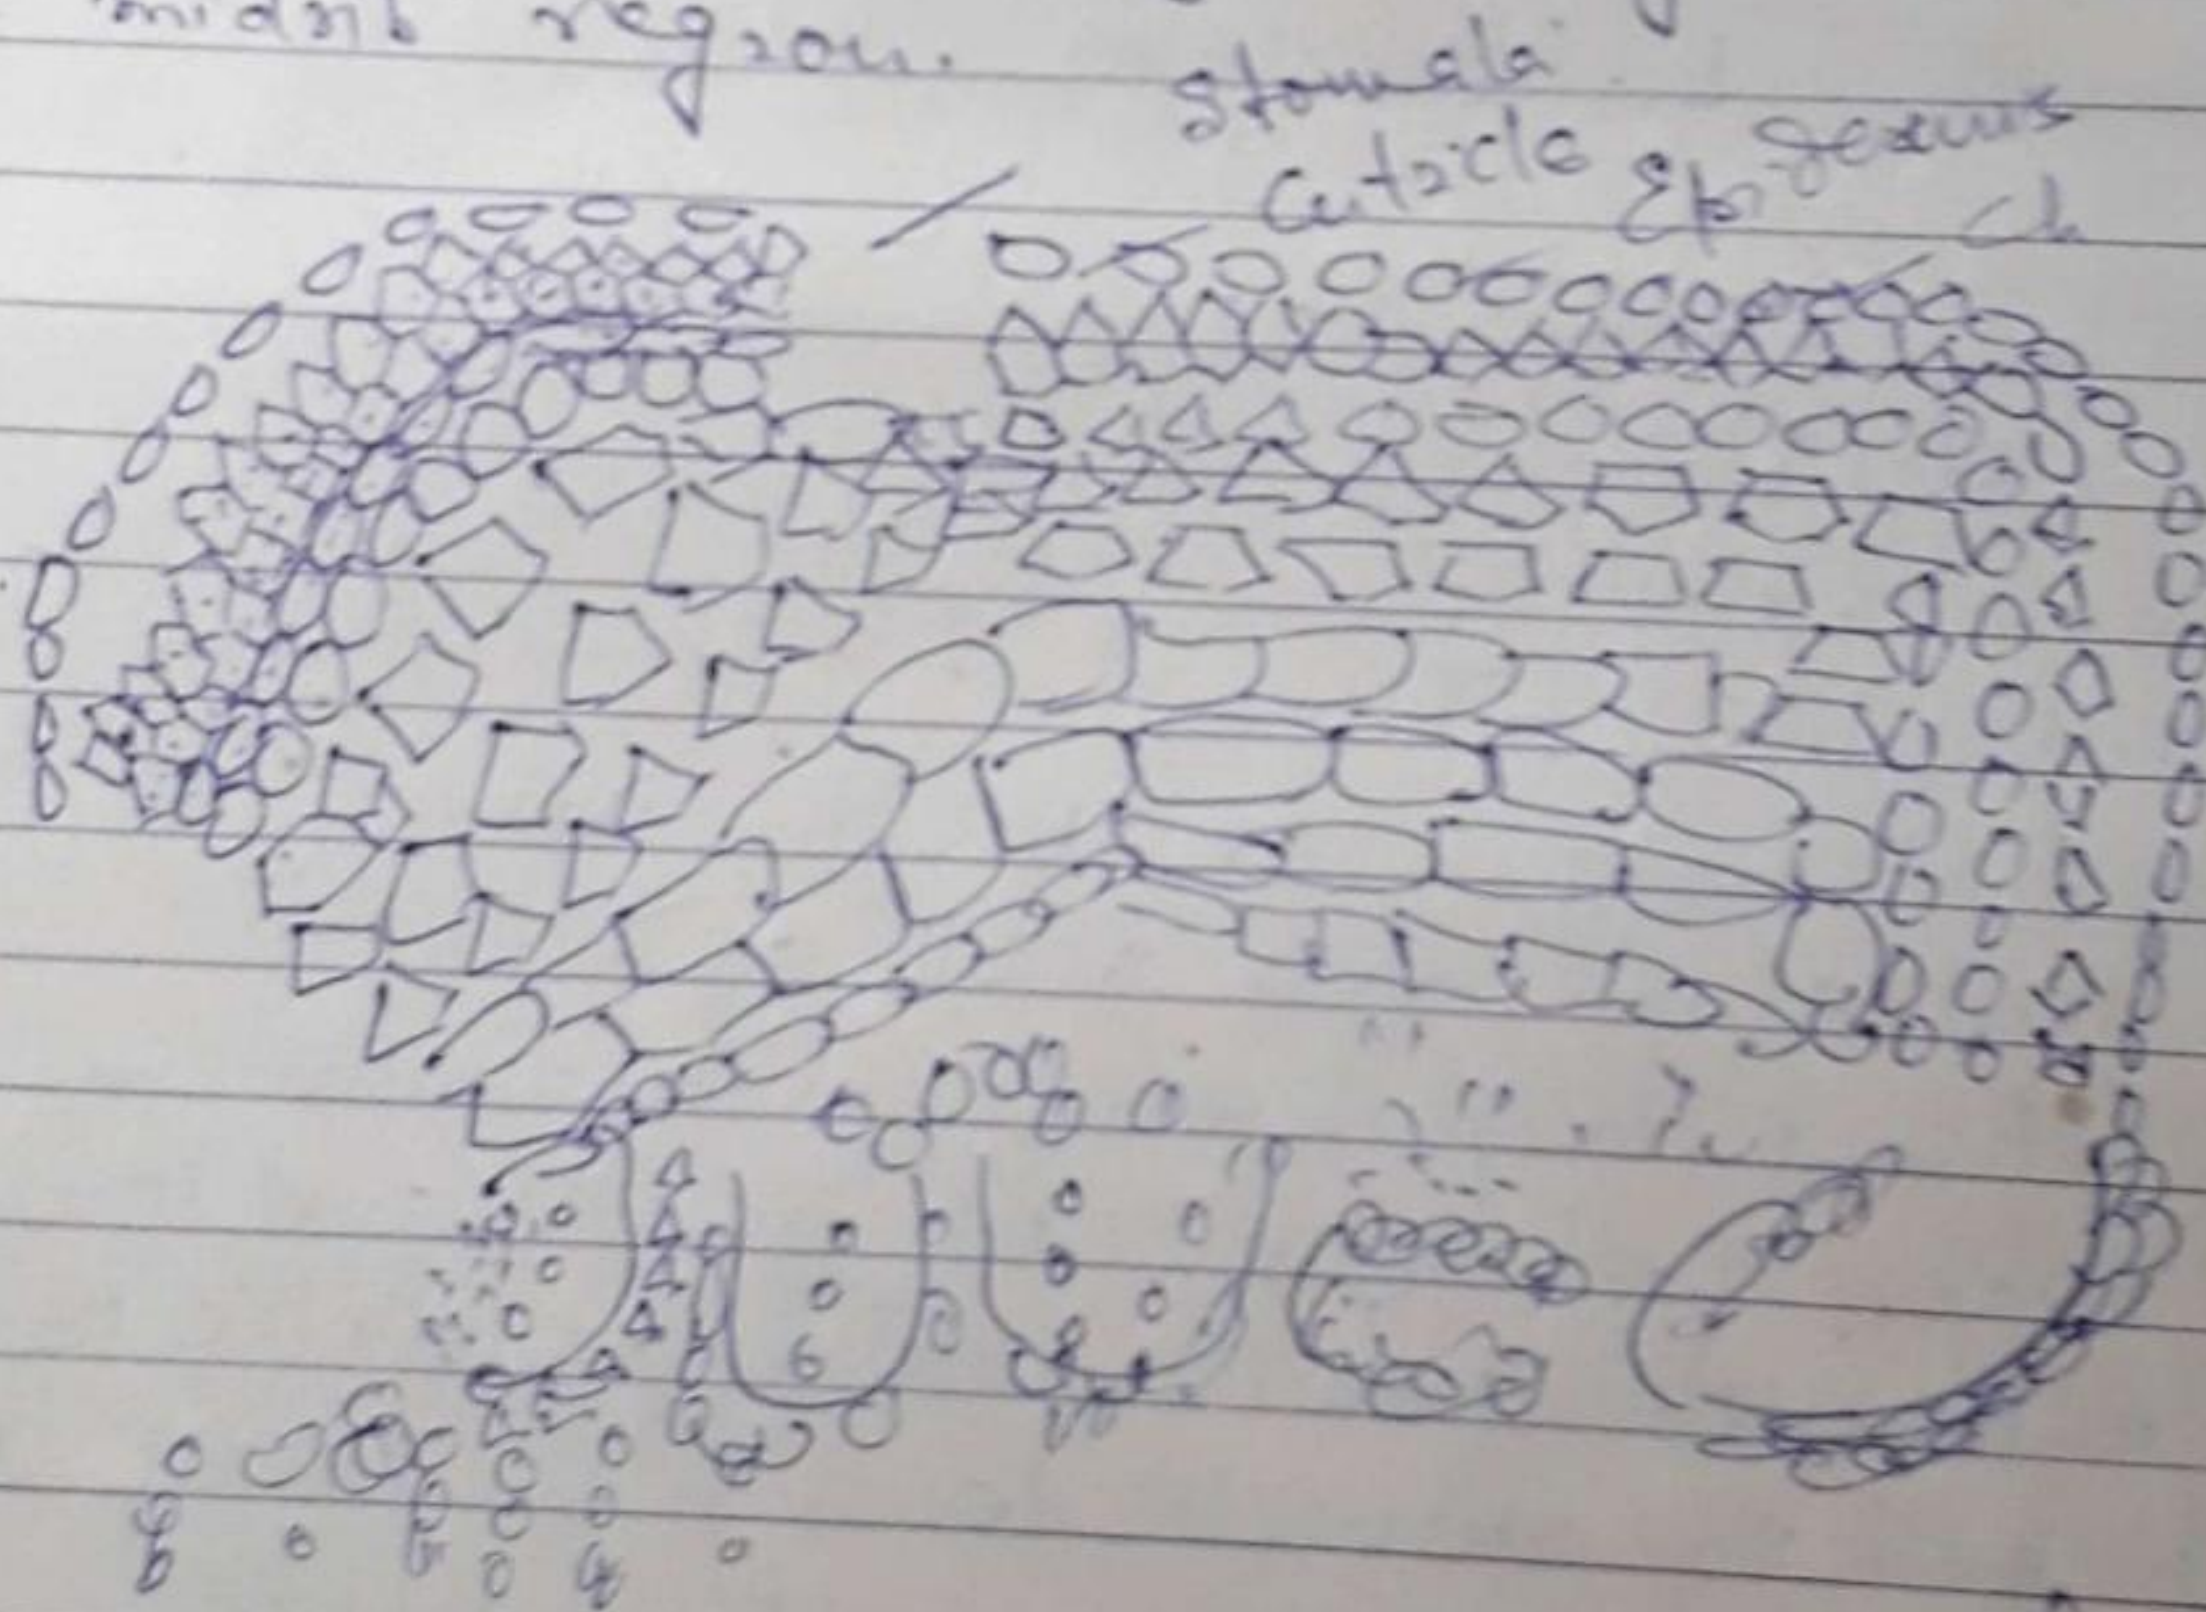 midrib region.
Stomata
Cuticle Epidermis